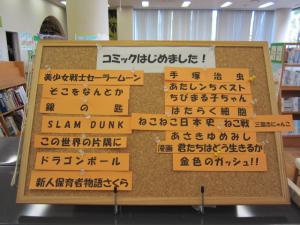 コミックはじめました!
美少女戦士セーラームーン
そこをなんとか
銀の匙
SLAM DUNK
この世界の片隅に
ドラゴンボール
新人保育者物語さくら
手塚治虫
あたしンちベスト
ちびまる子ちゃん
はたらく細胞
ねこねこ日本史 ねこ戦 三国志にゃんこ
あさきゆめみし
漫画 君たちはどう生きるか
金色のガッシュ!!